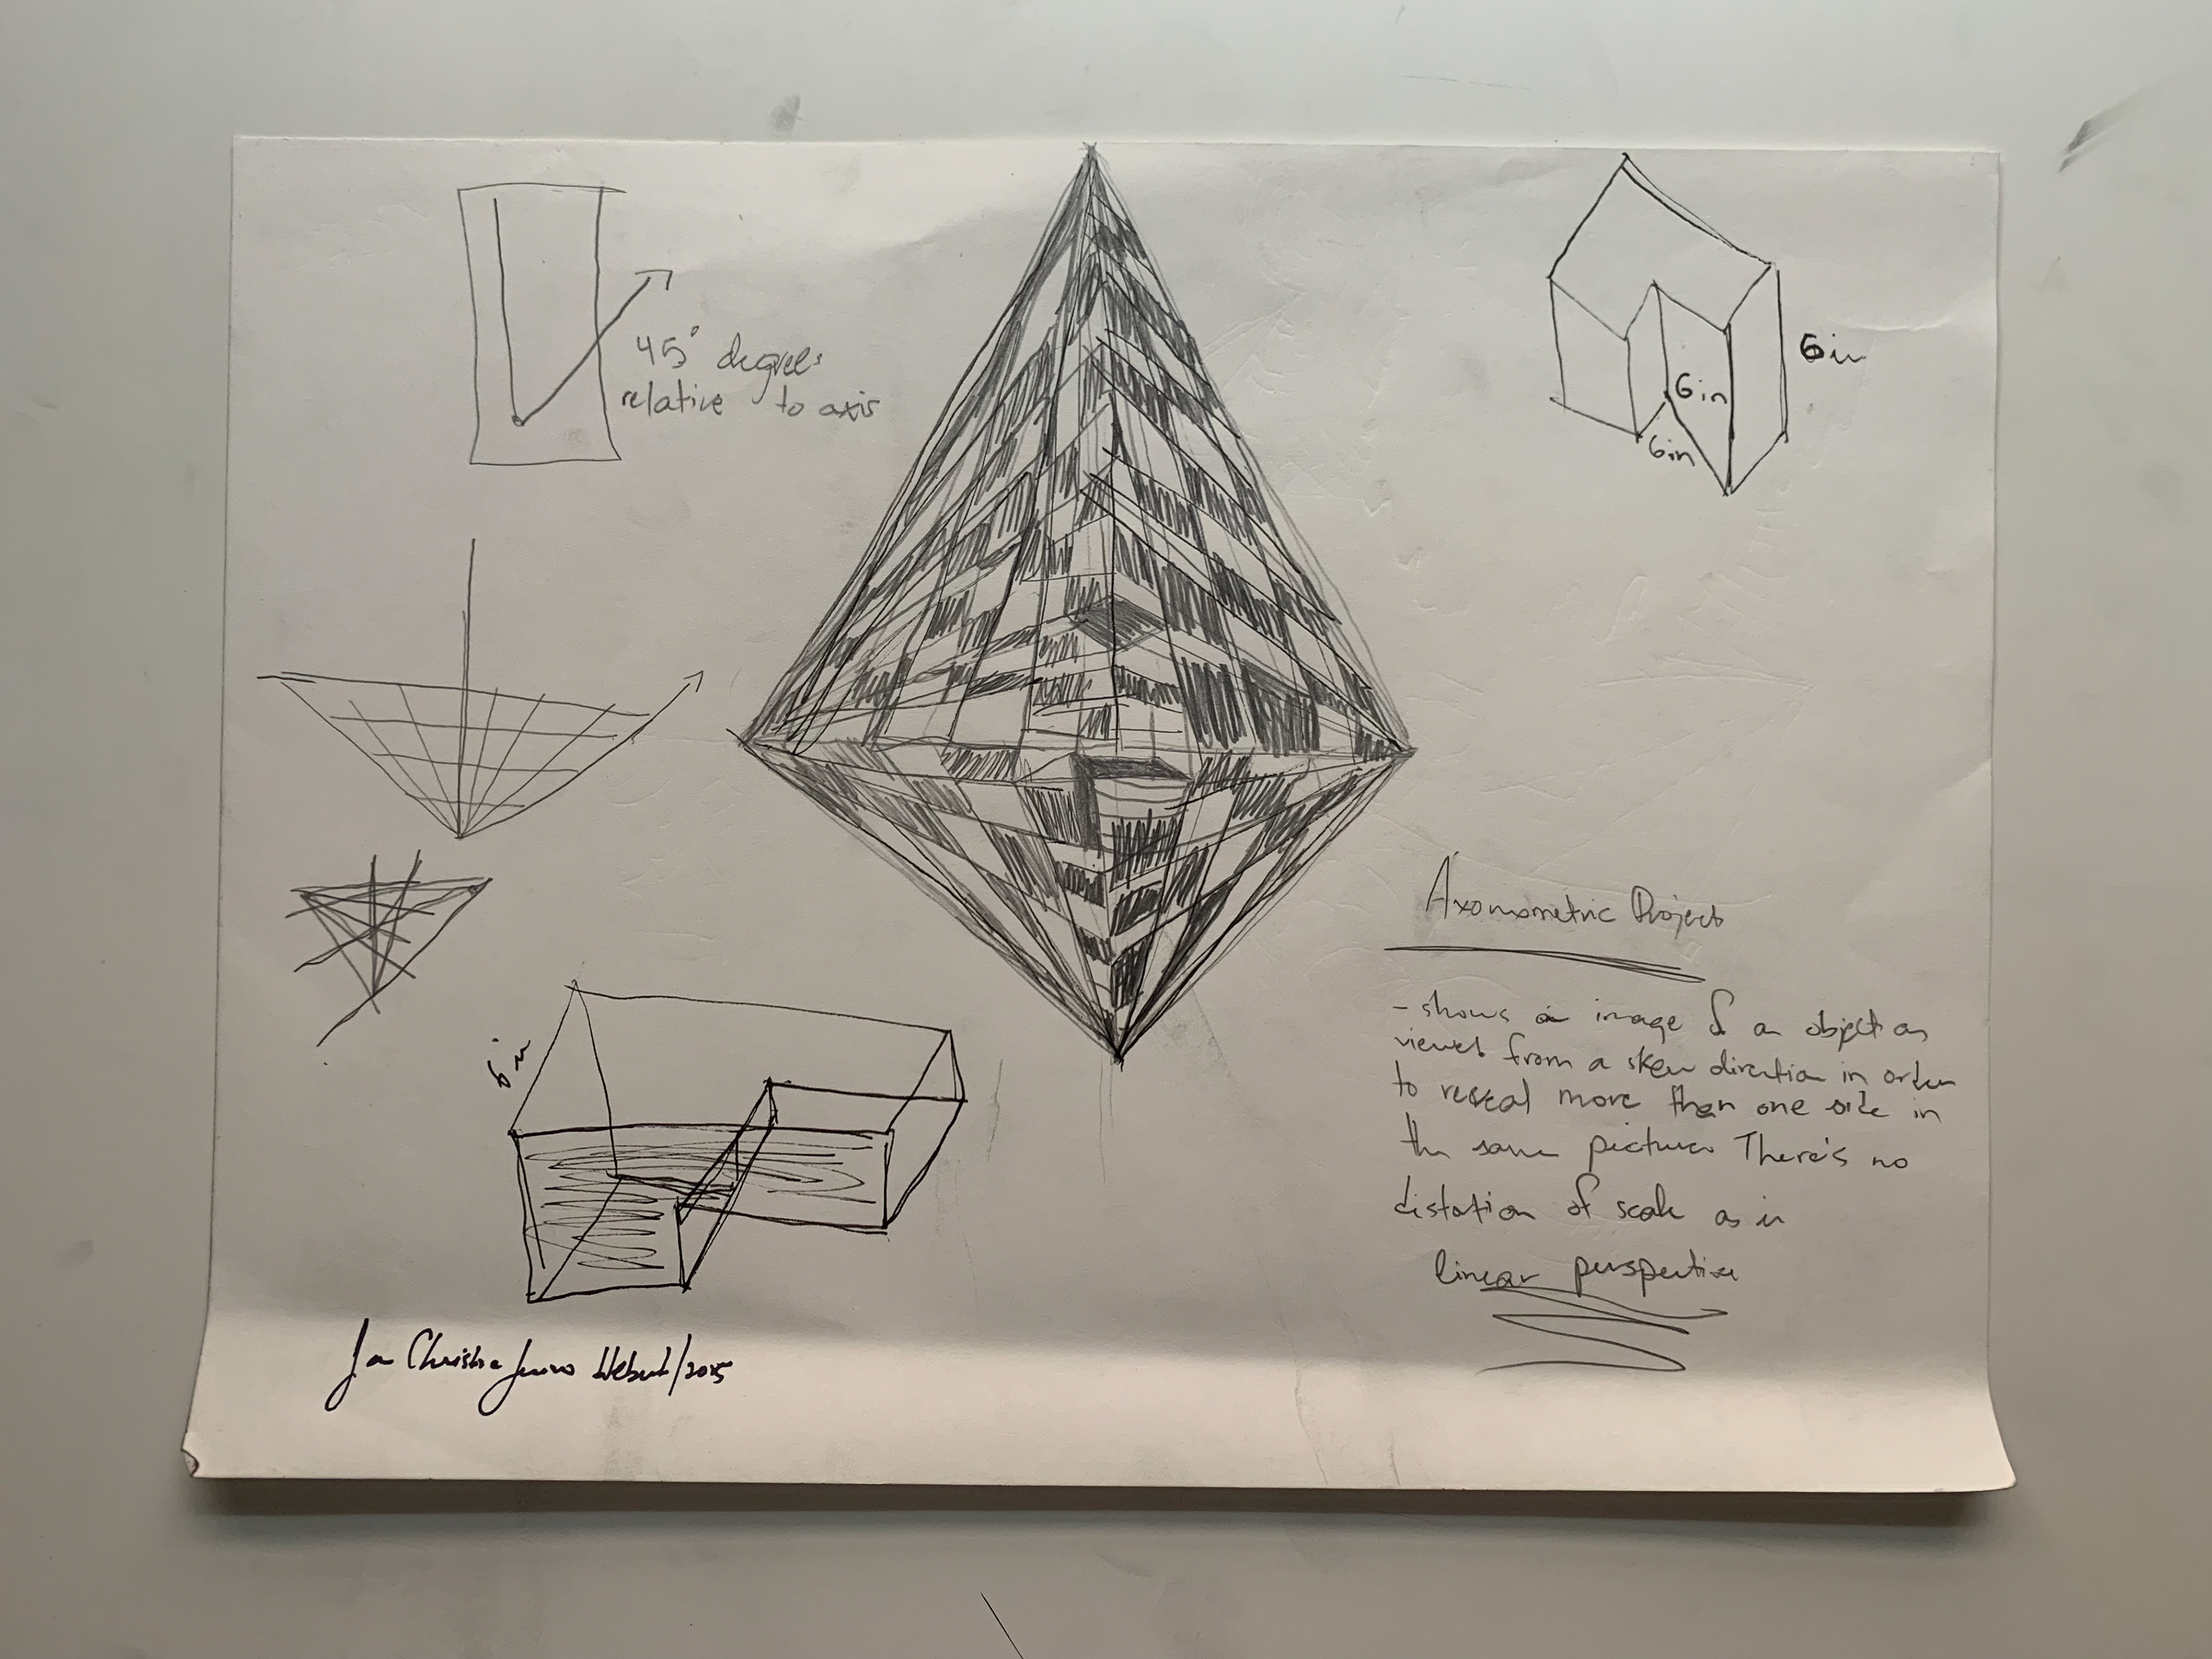 45° degrees
relative to axis
6in
6in
6in
Axonometric Project
- shows a image of a object as
viewed from a skew direction in order
to reveal more than one side in
the same picture There's no
distotion of scale as in
linear perspective
6in
Christian /2015